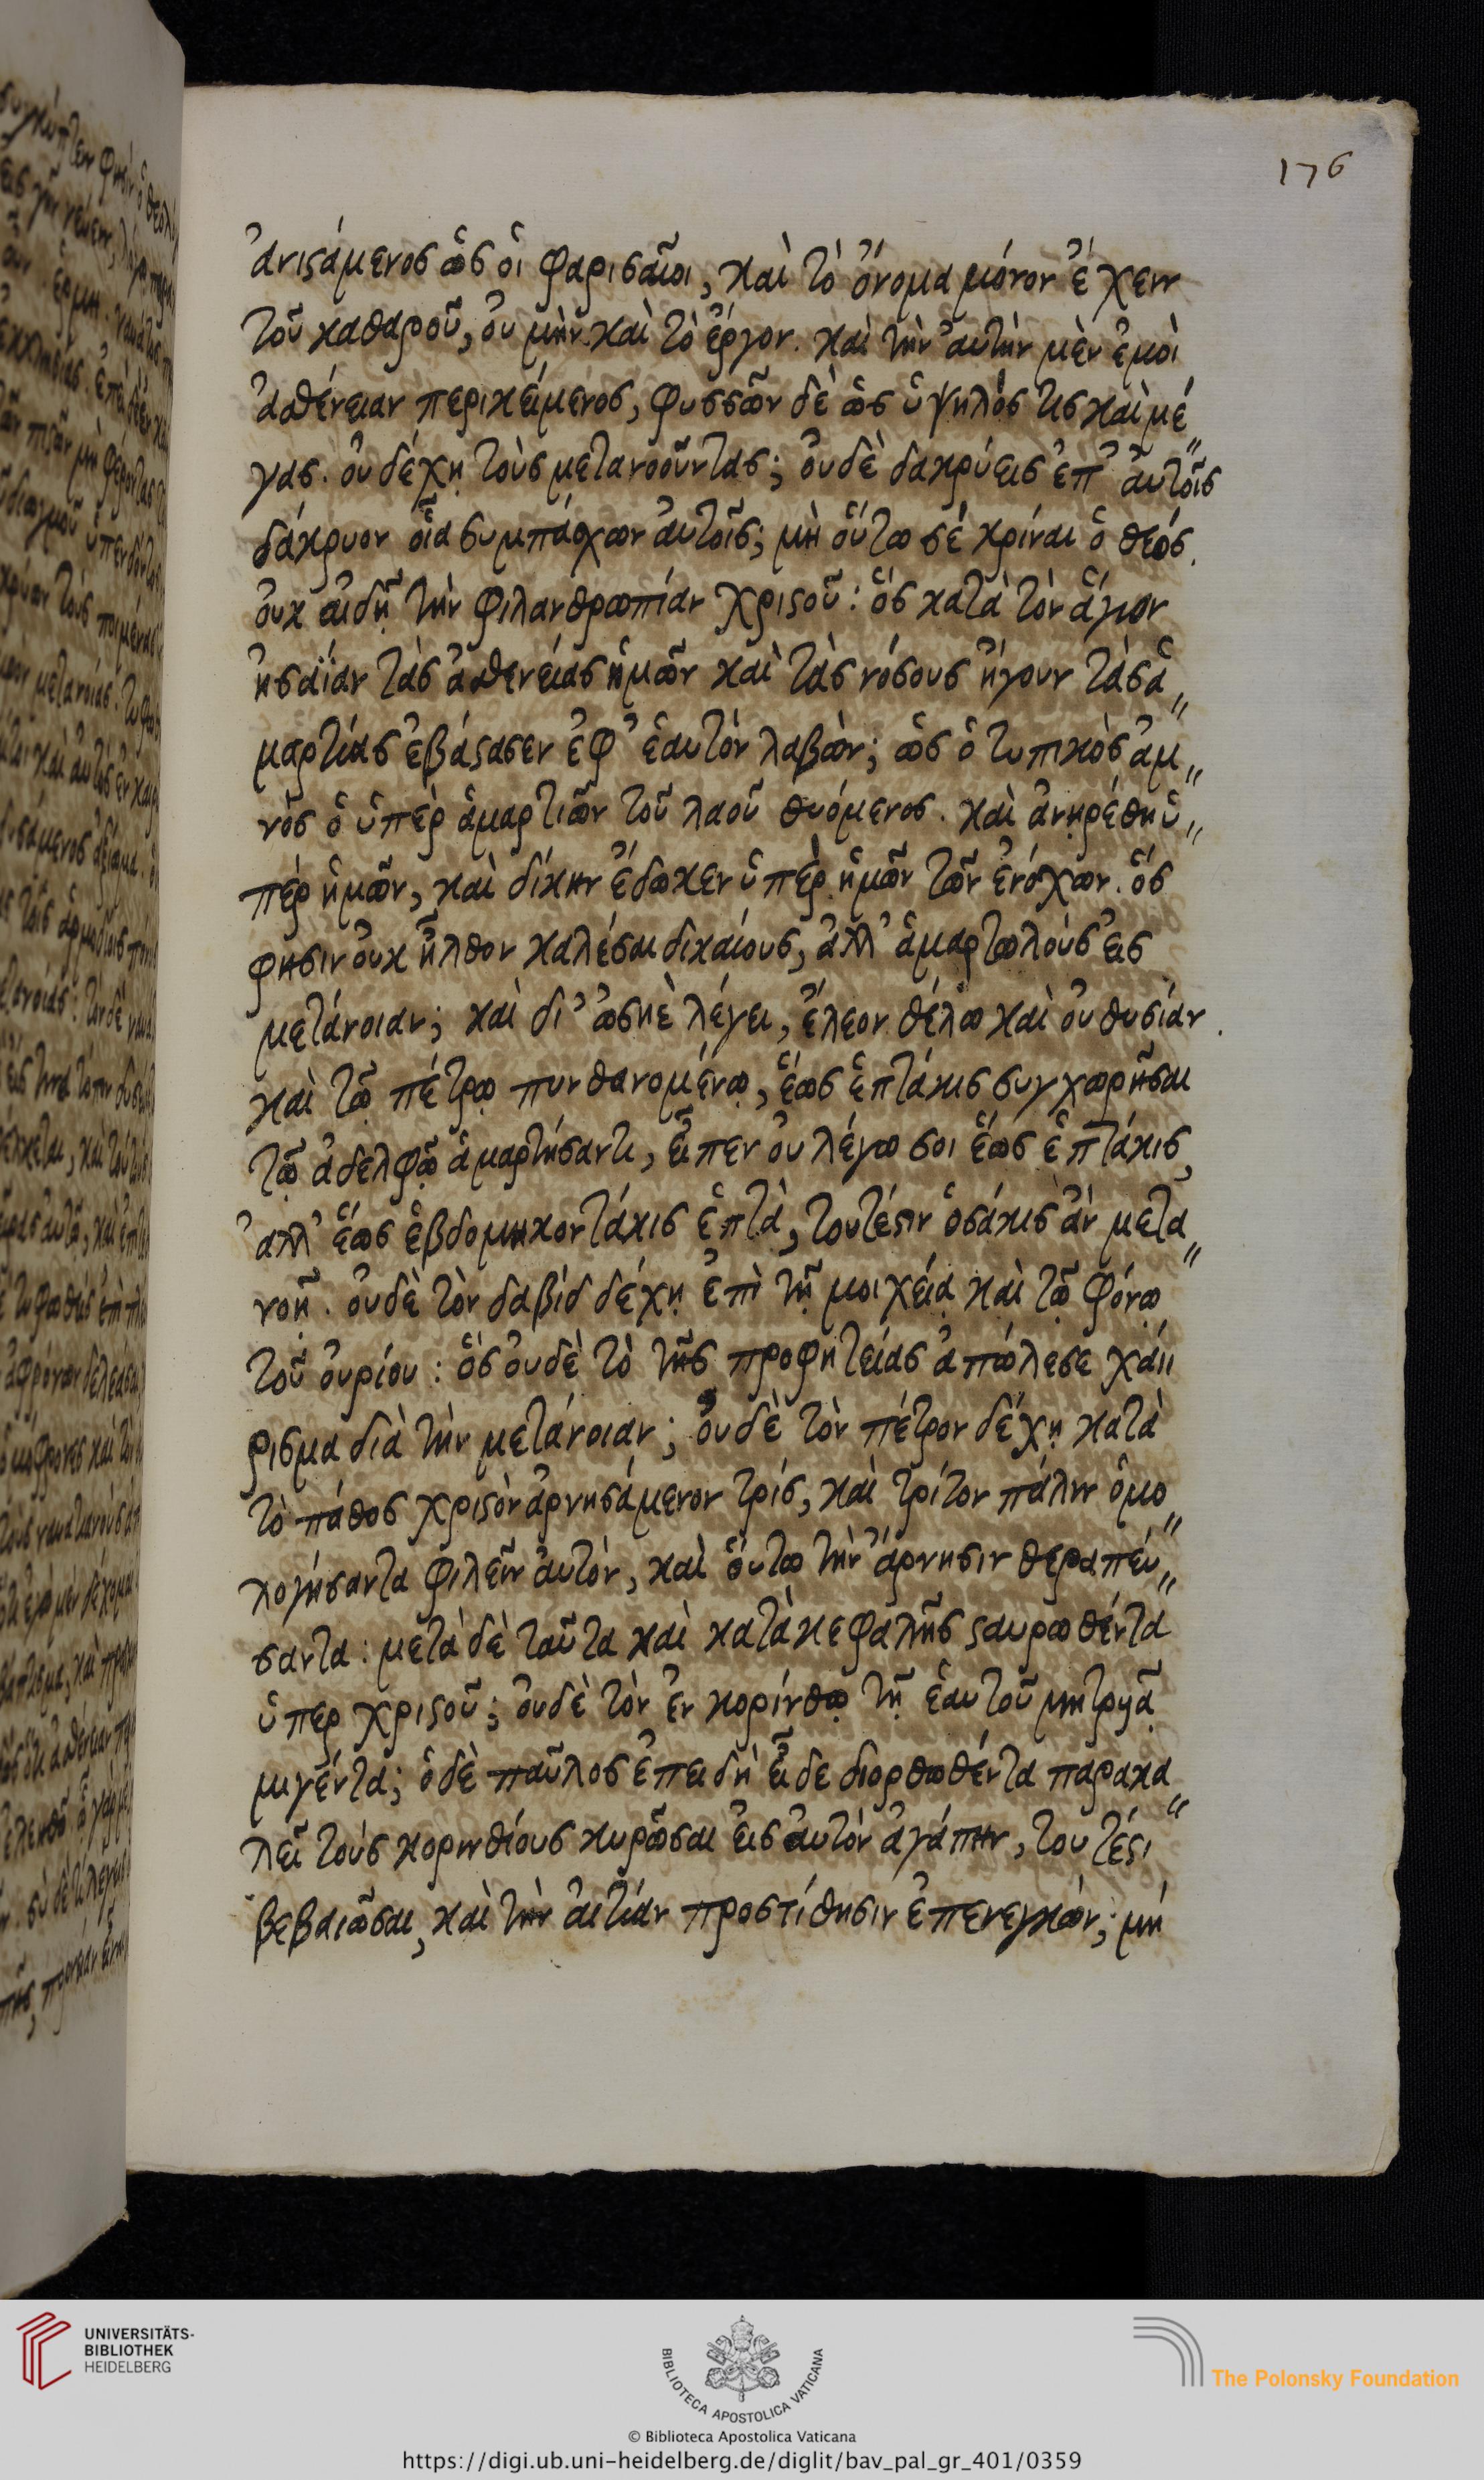 176
ἀνιστάμενος ὡς οἱ φαρισαῖοι, καὶ τὸ ὄνομα μόνον ἔχειν
τοῦ καθαροῦ, οὐ μὴν καὶ τὸ ἔργον. καὶ τὴν αὐτὴν μὲν ἐμοὶ
ἀσθένειαν περικείμενος, φυσσῶν δὲ ὡς ὑψηλός τις καὶ μέ
γας. οὐ δέχῃ τοὺς μετανοοῦντας; οὐδὲ δακρύεις ἐπ' αὐτοῖς
δάκρυον οἷα συμπάσχων αὐτοῖς; μὴ οὕτω σέ κρίναι ὁ θεός.
οὐκ αἰδῇ τὴν φιλανθρωπίαν χριστοῦ: ὅς κατὰ τὸν ἅγιον
ἠσαΐαν τὰς ἀσθενείας ἡμῶν καὶ τὰς νόσους ἤγουν τὰς ἁ〃
μαρτίας ἐβάστασεν ἐφ' ἑαυτὸν λαβὼν; ὡς ὁ τυπικὸς ἀμ〃
νὸς ὁ ὑπὲρ ἁμαρτιῶν τοῦ λαοῦ θυόμενος. καὶ ἀνῃρέθη ὑ〃
πὲρ ἡμῶν, καὶ δίκην ἔδωκεν ὑπὲρ ἡμῶν τῶν ἐνόχων. ὅς
φησιν οὐκ ἦλθον καλέσαι δικαίους, ἀλλ' ἁμαρτωλοὺς εἰς
μετάνοιαν; καὶ δι' ὠσηὲ λέγει, ἔλεον θέλω καὶ οὐ θυσίαν.
καὶ τῷ πέτρῳ πυνθανομένῳ, ἕως ἑπτάκις συγχωρῆσαι
τῷ ἀδελφῷ ἁμαρτήσαντι, εἶπεν οὐ λέγω σοι ἕως ἑπτάκις,
ἀλλ' ἕως ἑβδομηκοντάκις ἑπτὰ, τουτέστιν ὁσάκις ἂν μετα〃
νοῇ. οὐδὲ τὸν δαβίδ δέχῃ ἐπὶ τῇ μοιχείᾳ καὶ τῷ φόνῳ
τοῦ οὐρίου: ὃς οὐδὲ τὸ τῆς προφητείας ἀπώλεσε χά〃
ρισμα διὰ τὴν μετάνοιαν; οὐδὲ τὸν πέτρον δέχῃ κατὰ
τὸ πάθος χριστὸν ἀρνησάμενον τρίς, καὶ τρίτον πάλιν ὁμο〃
λογήσαντα φιλεῖν αὐτόν, καὶ οὕτω τὴν ἄρνησιν θεραπεύ〃
σαντα: μετὰ δὲ ταῦτα καὶ κατὰ κεφαλῆς σταυρωθέντα
ὑπερ χριστοῦ; οὐδὲ τὸν ἐν κορίνθῳ τῇ ἑαυτοῦ μητρυᾷ
μιγέντα; ὁ δὲ παῦλος ἐπειδὴ εἶδε διορθωθέντα παρακα〃
λεῖ τοὺς κορινθίους κυρῶσαι εἰς αὐτὸν ἀγάπην, τουτέστι
βεβαιῶσαι, καὶ τὴν αἰτίαν προστίθησιν ἐπενεγκών; μή
UNIVERSITÄTS-
BIBLIOTHEK
HEIDELBERG
BIBLIOTECA APOSTOLICA VATICANA
The Polonsky Foundation
© Biblioteca Apostolica Vaticana
https://digi.ub.uni-heidelberg.de/diglit/bav_pal_gr_401/0359